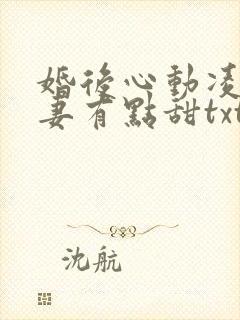 婚後心動凌
妻有點甜txt
沈航